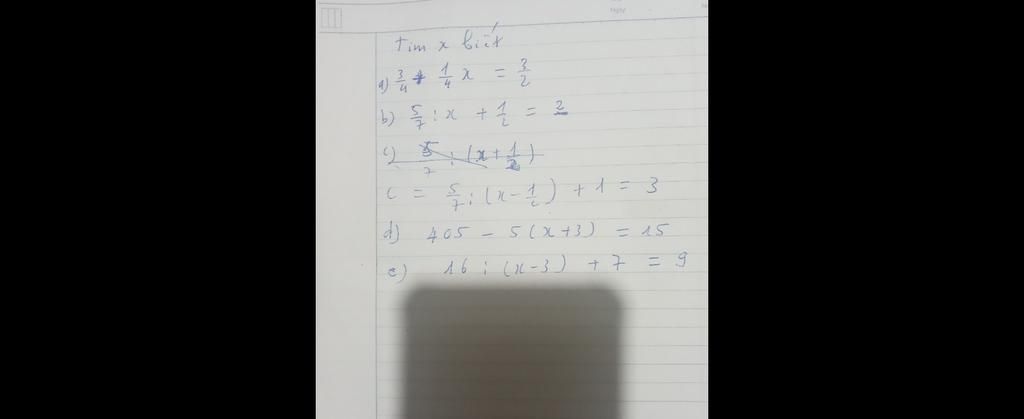 Ngày
tìm x biết
a) 3/4 + 1/4 x = 3/2
b) 5/7 : x + 1/2 = 2
c) 5/7 : (x + 1/2)
c = 5/7 : (x - 1/2) + 1 = 3
d) 405 - 5(x+3) = 15
e) 16 : (x-3) + 7 = 9